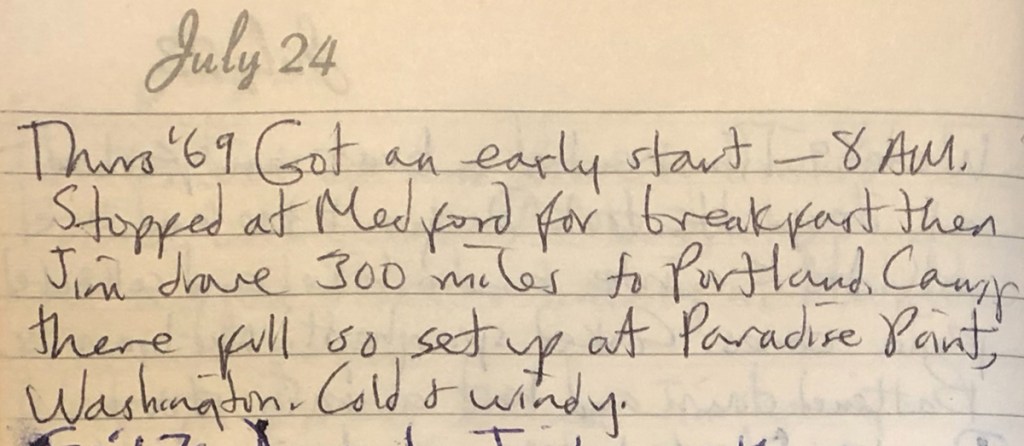 July 24
Thurs '69 Got an early start – 8 A.M.
Stopped at Medford for breakfast then
Jim drove 300 miles to Portland. Camp
there full so set up at Paradise Point,
Washington. Cold & windy.